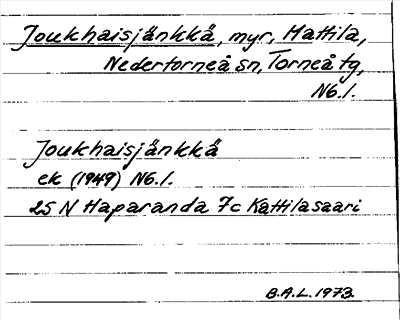 Joukhaisjänkkä, myr, Mattila,
Nedertorneå sn, Torneå tg,
Nb.l.
Joukhaisjänkkä
ek (1949) Nb.l.
25 N Haparanda 7c Kattilasaari
B.A.L. 1973.